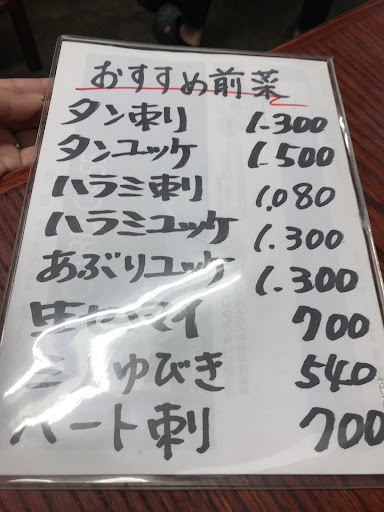 おすすめ前菜
タン刺り 1.300
タンユッケ 1.500
ハラミ刺り 1.080
ハラミユッケ 1.300
あぶりユッケ 1.300
700
ミ ゆびき 540
ハート刺り 700